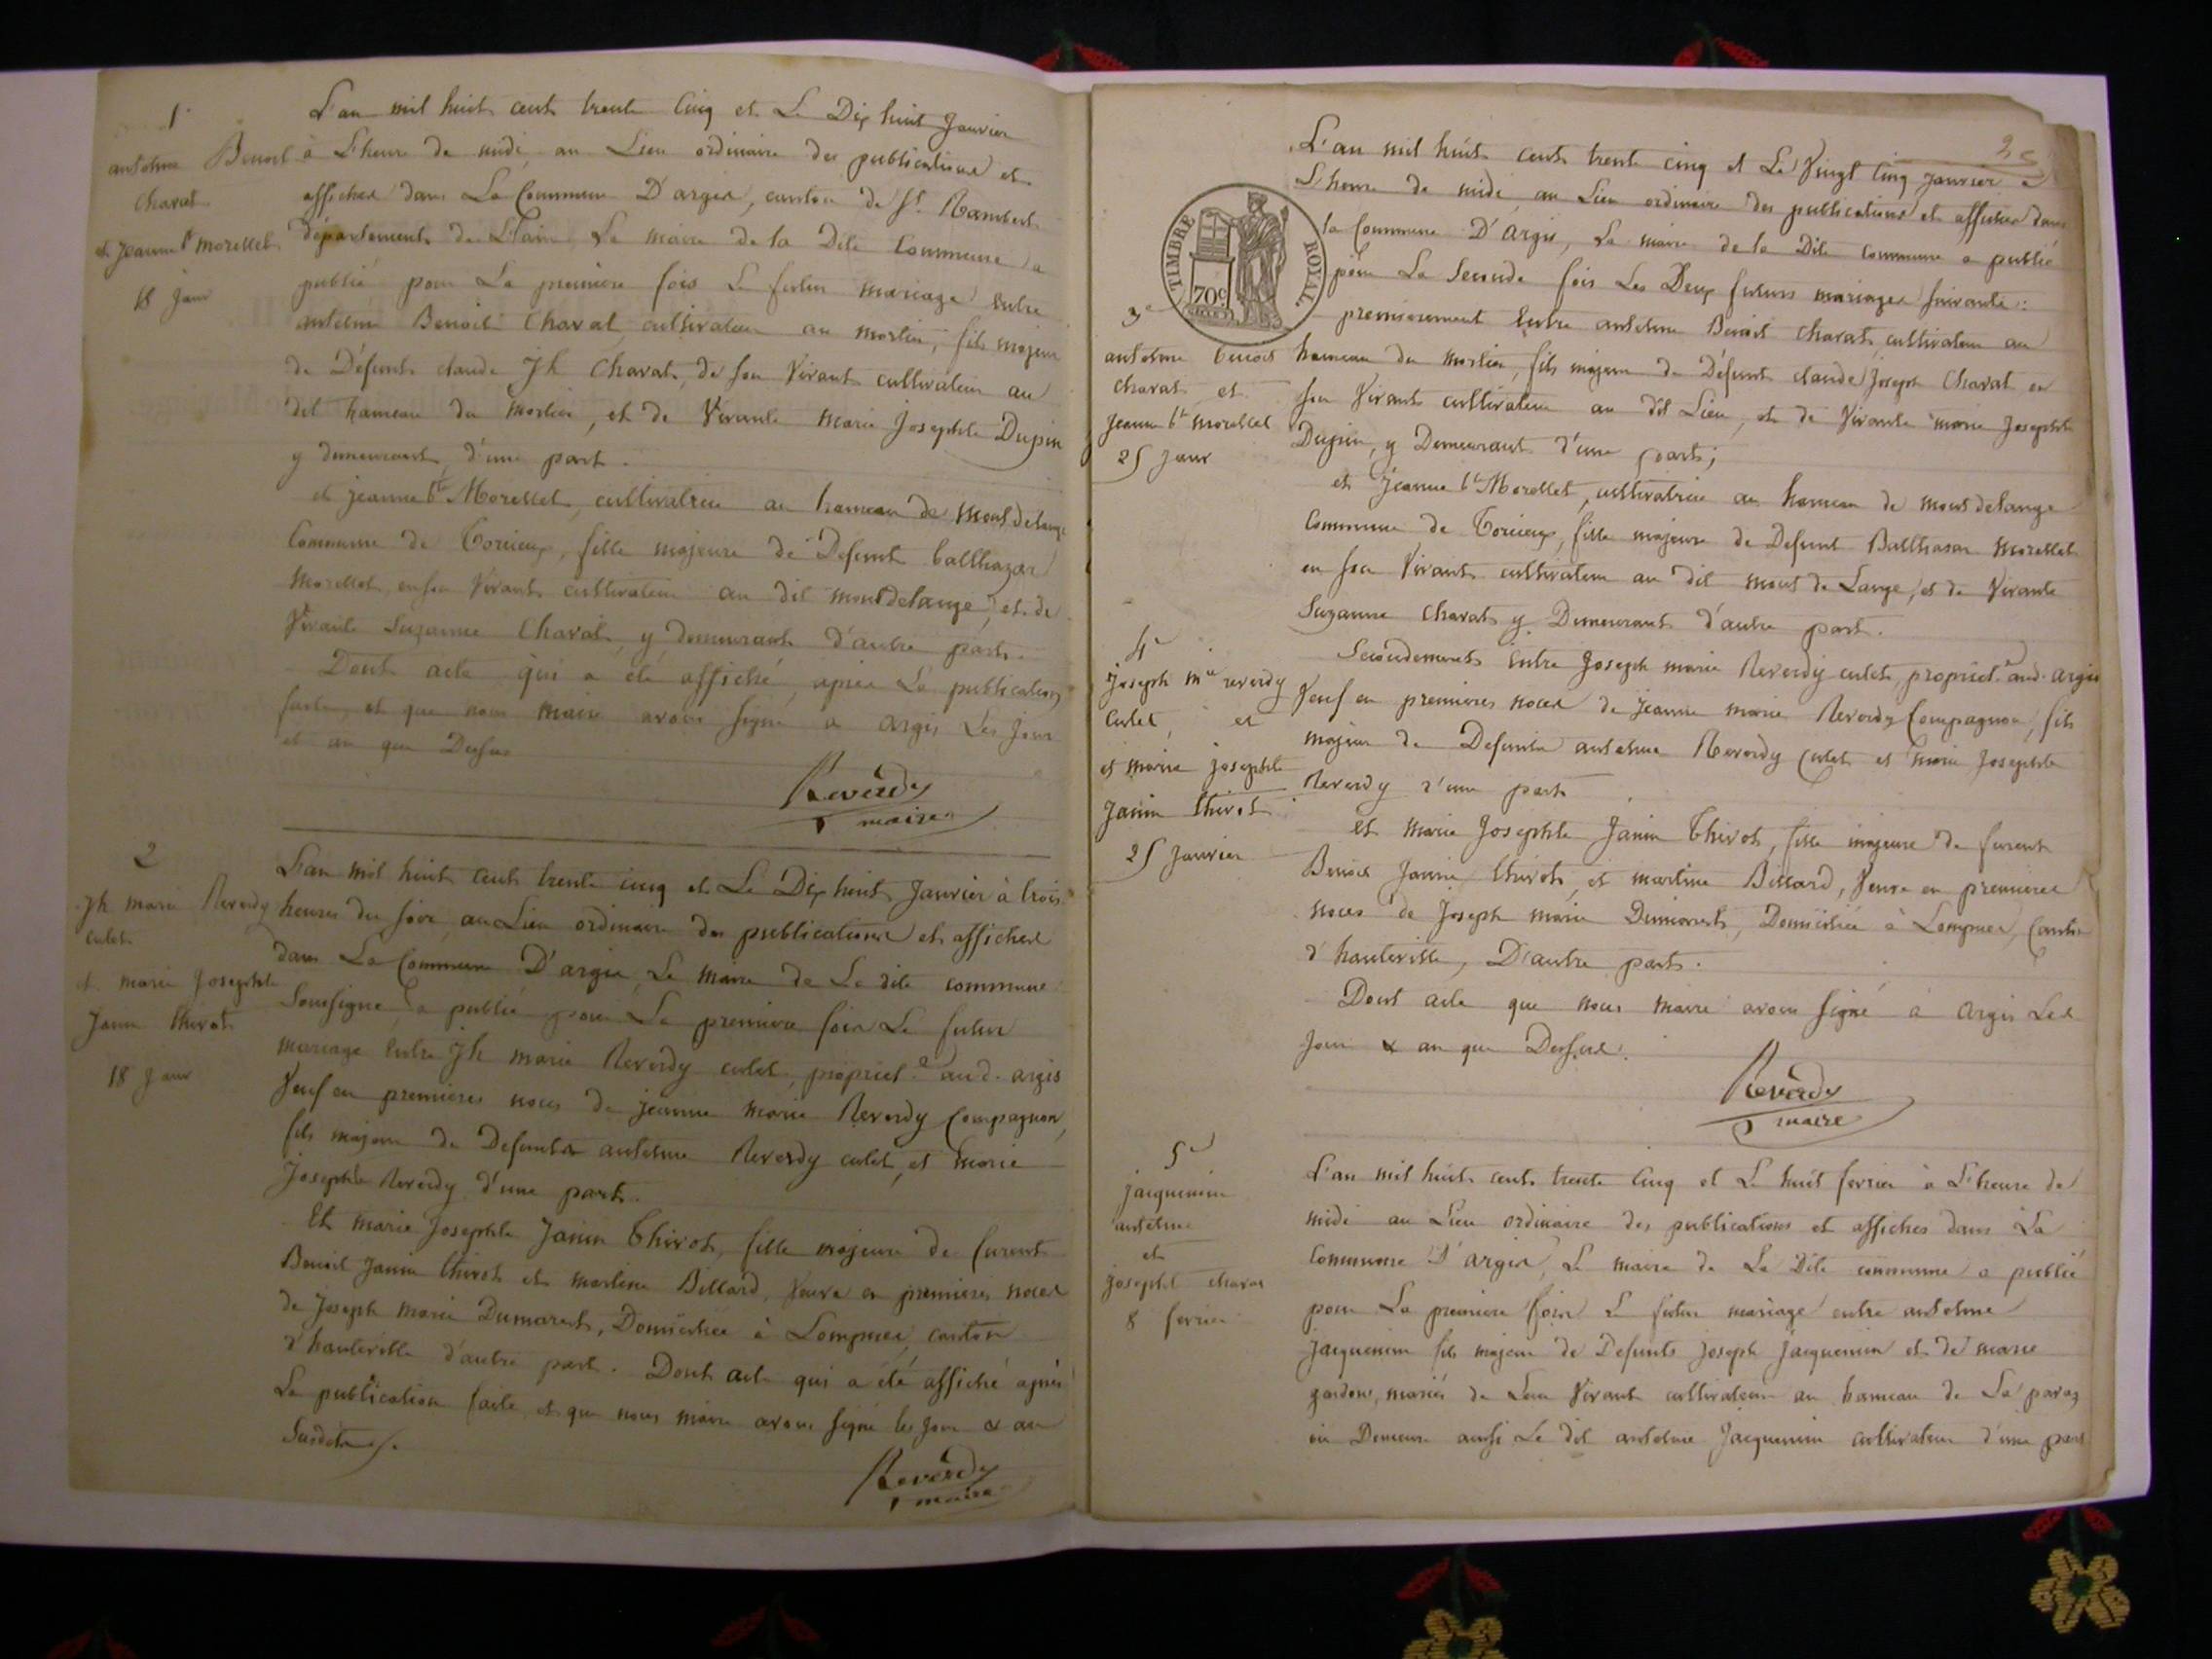 1
antelme Benoit
Charat
et Jeanne bte Morellet
18 janv
L'an mil huit cent trente cinq et Le Dix huit Janvier
à L'heure de midi, au Lieu ordinaire des publications et
affiches dans La Commune D'argis, canton de St Rambert
département de L'ain Le maire de la Dite Commune a
publié pour La premiere fois Le futur mariage entre
antelme Benoit Charat cultivateur au mortier, fils majeur
de Défunt claude Jh Charat, de son Vivant cultivateur au
dit hameau du mortier, et de Vivante marie Josephte Dupin
y demeurant, d'une part.
et jeanne bte Morellet, cultivatrice au hameau de Montdelange
Commune de Torcieux, fille majeure de Defunt balthazar
Morellet, en son Vivant cultivateur au dit montdelange, et de
Vivante Suzanne Charat, y demeurant d'autre part.
Dont acte qui a été affiché, après La publication
faite, et que nous maire avons signé a argis Les jour
et an que Dessus
Reverdy
maire
2
Jh marie Reverdy
culet
et marie Josephte
Janin thivot
18 Janv
L'an mil huit cent trente cinq et Le Dix huit Janvier à trois
heures du soir, au Lieu ordinaire des publications et affiches
dans La Commune D'argis, Le maire de La dite commune
Soussigné, a publié pour La premiere fois Le futur
mariage entre Jh marie Reverdy culet, propriet.e aud. argis
Veuf en premieres noces de jeanne marie Reverdy Compagnon,
fils majeur de Defunts antelme Reverdy culet, et marie
Josephte Reverdy d'une part.
Et marie Josephte Janin Thivot, fille majeure de furent
Benoit Janin thivot et martine Billard, Veuve en premieres noces
de Joseph marie Dumarest, Domiciliée à Lompnes, canton
d'hauteville d'autre part. Dont acte qui a été affiché après
La publication faite, et que nous maire avons signé les jour & an
Susdits.
Reverdy
maire
TIMBRE ROYAL.
70c
L'an mil huit cent trente cinq et Le Vingt Cinq Janvier à
L'heure de midi, au Lieu ordinaire des publications et affiches dans
la Commune D'Argis, Le maire de la Dite commune a publié
pour La Seconde fois Les Deux futurs mariages suivants:
3e
antelme benoit
charat et
Jeanne bte morellet
25 Janv
premierement Entre antelme Benoit Charat, cultivateur au
hameau du mortier, fils majeur de Défunt claude Joseph Charat en
son Vivant cultivateur au dit Lieu, et de Vivante marie Josephte
Dupin, y Demeurant d'une part;
et Jeanne bte Morellet, cultivatrice au hameau de mont delange
Commune de Torcieux, fille majeure de Defunt Balthasar Morellet
en son Vivant cultivateur au dit mont de Lange, et de Vivante
Suzanne Charat y Demeurant d'autre part.
4e
joseph mie reverdy
Culet, et
et marie josephte
janin thivot
25 Janvier
Secondement Entre Joseph marie Reverdy culet, propriet.e aud. argis
Veuf en premieres noces de Jeanne marie Reverdy Compagnon, fils
majeur de Defunts antelme Reverdy Culet et marie Josephte
Reverdy d'une part
et marie Josephte Janin Thivot, fille majeure de furent
Benoit Janin thivot, et martine Billard, Veuve en premieres
noces de Joseph marie Dumarest, Domiciliée à Lompnes, Canton
d'hauteville, D'autre part.
Dont acte que nous maire avons signé à argis Les
Jour & an que Dessus.
Reverdy
maire
5e
jacquemin
antelme
et
josephte charat
8 fevrier
L'an mil huit cent trente Cinq et Le huit fevrier à L'heure de
midi au Lieu ordinaire des publications et affiches dans La
Commune D'argis, Le maire de La Dite commune a publié
pour La premiere fois Le futur mariage entre antelme
Jacquemin fils majeur de Defunts Joseph Jacquemin et de marie
mariés de Leur Vivant cultivateurs au hameau de
où Demeure aussi Le dit antelme Jacquemin cultivateur d'une part